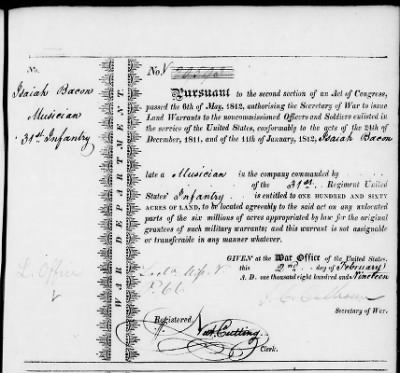 No.
Isaiah Bacon
Musician
31st Infantry
L. Office
WAR DEPARTMENT.
No.
Pursuant to the second section of an Act of Congress,
passed the 6th of May, 1812, authorising the Secretary of War to issue
Land Warrants to the noncommissioned Officers and Soldiers enlisted in
the service of the United States, conformably to the acts of the 24th of
December, 1811, and of the 11th of January, 1812, Isaiah Bacon
late a Musician in the company commanded by
of the 31st Regiment United
States' Infantry is entitled to ONE HUNDRED AND SIXTY
ACRES OF LAND, to be located agreeably to the said act on any unlocated
parts of the six millions of acres appropriated by law for the original
grantees of such military warrants; and this warrant is not assignable
or transferable in any manner whatever.
GIVEN at the War Office of the United States,
this 2nd day of February
A. D. one thousand eight hundred and Nineteen
J. C. Calhoun
Secretary of War.
Registered
Nat. Cutting
Clerk.